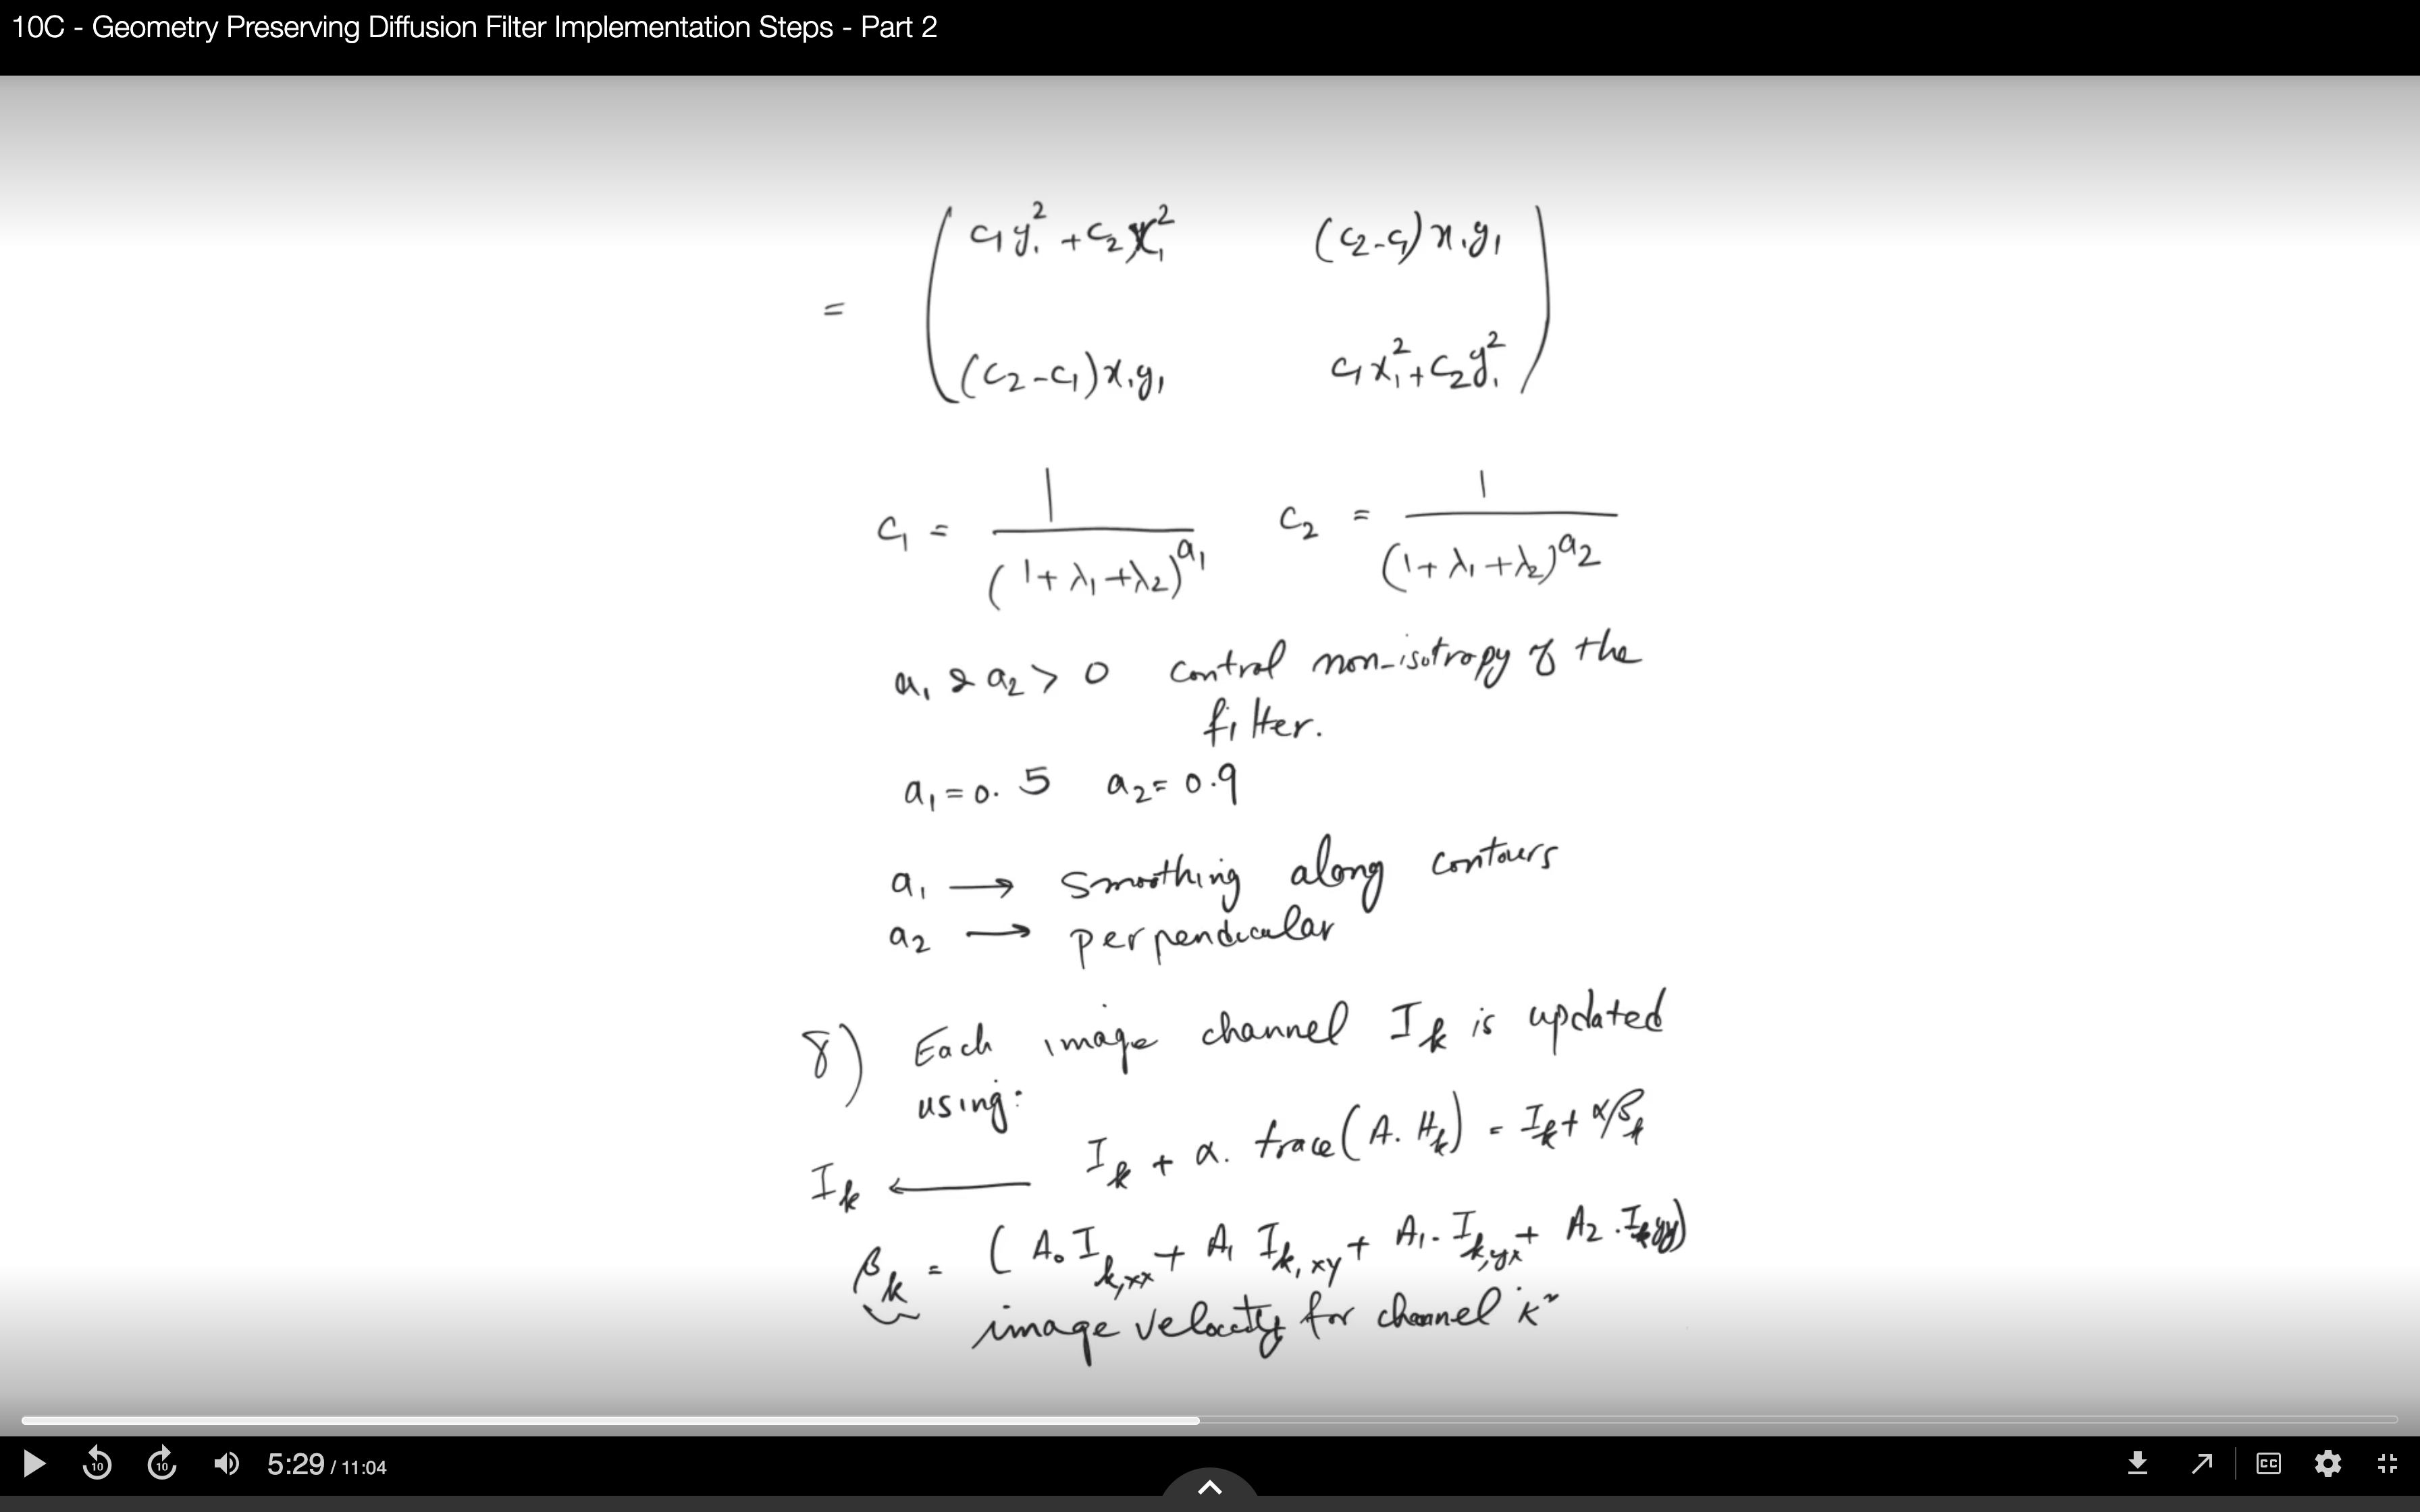 10C - Geometry Preserving Diffusion Filter Implementation Steps - Part 2
= ( c₁y₁² + c₂x₁² (c₂-c₁)x₁y₁
(c₂-c₁)x₁y₁ c₁x₁² + c₂y₁² )
c₁ = 1 / (1+λ₁+λ₂)^a₁ c₂ = 1 / (1+λ₁+λ₂)^a₂
a₁ & a₂ > 0 control non-isotropy of the
filter.
a₁ = 0.5 a₂ = 0.9
a₁ → smoothing along contours
a₂ → perpendicular
8) Each image channel I_k is updated
using:
I_k ← I_k + α. trace(A. H_k) = I_k + αβ_k
β_k = (A₀ I_k,xx + A₁ I_k,xy + A₁. I_k,yx + A₂. I_k,yy)
image velocity for channel "k"
10 10 5:29 / 11:04 CC